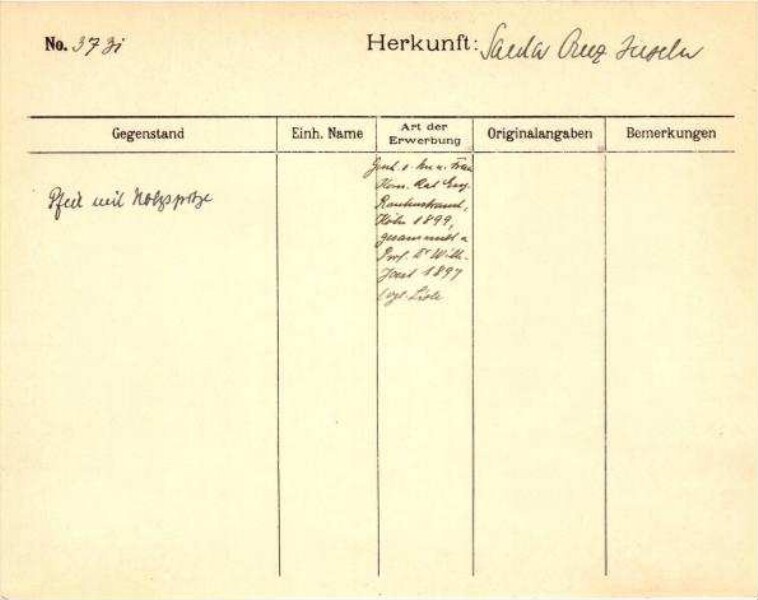 No. 373i
Herkunft: Santa Cruz Inseln
Gegenstand
Einh. Name
Art der
Erwerbung
Originalangaben
Bemerkungen
Pfeil mit Holzspitze
Gesch. v. Hrn. u. Frau
Kom. Rat Eug.
Rautenstrauch,
Köln 1899,
gesammelt v.
Prof. Dr Wilh.
Joest 1897
(vgl. Liste